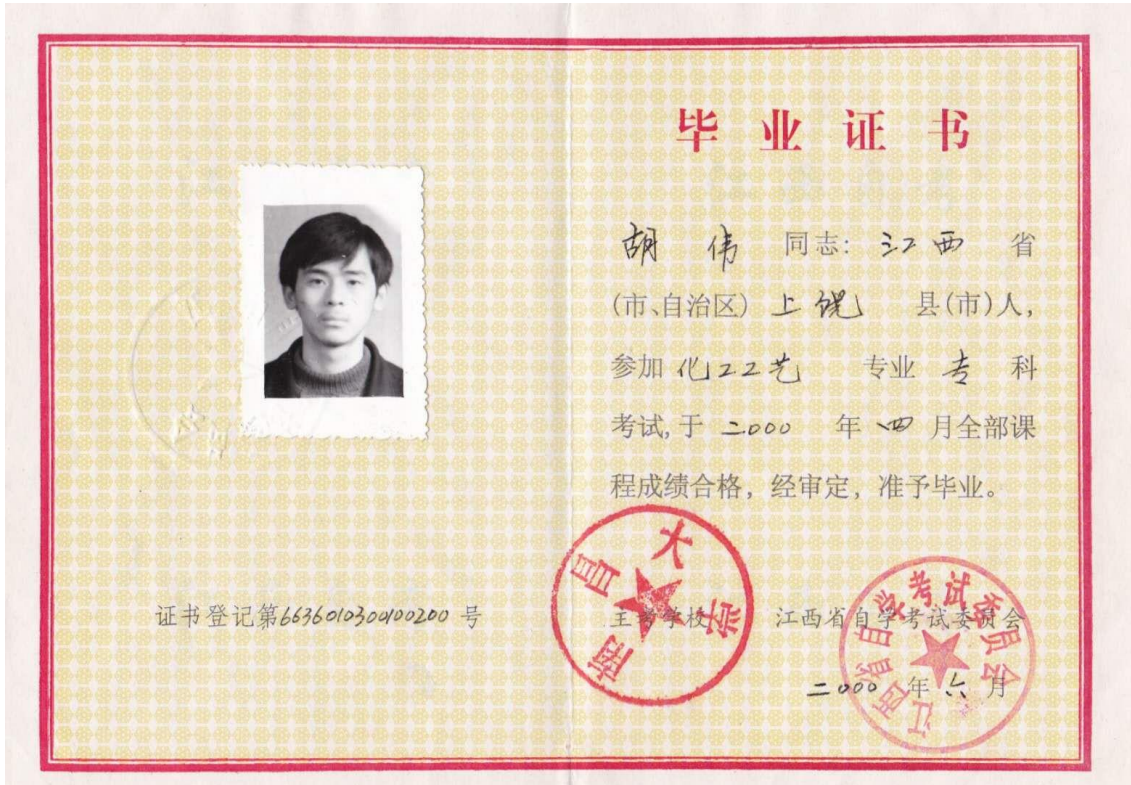 毕业证书
胡伟 同志：江西 省
(市、自治区) 上饶 县(市)人，
参加 化工工艺 专业 专 科
考试，于 二000 年 四 月全部课
程成绩合格，经审定，准予毕业。
证书登记第6636010300100200 号
主考学校 江西省自学考试委员会
二000 年 六 月
南昌大学
江西省自学考试委员会